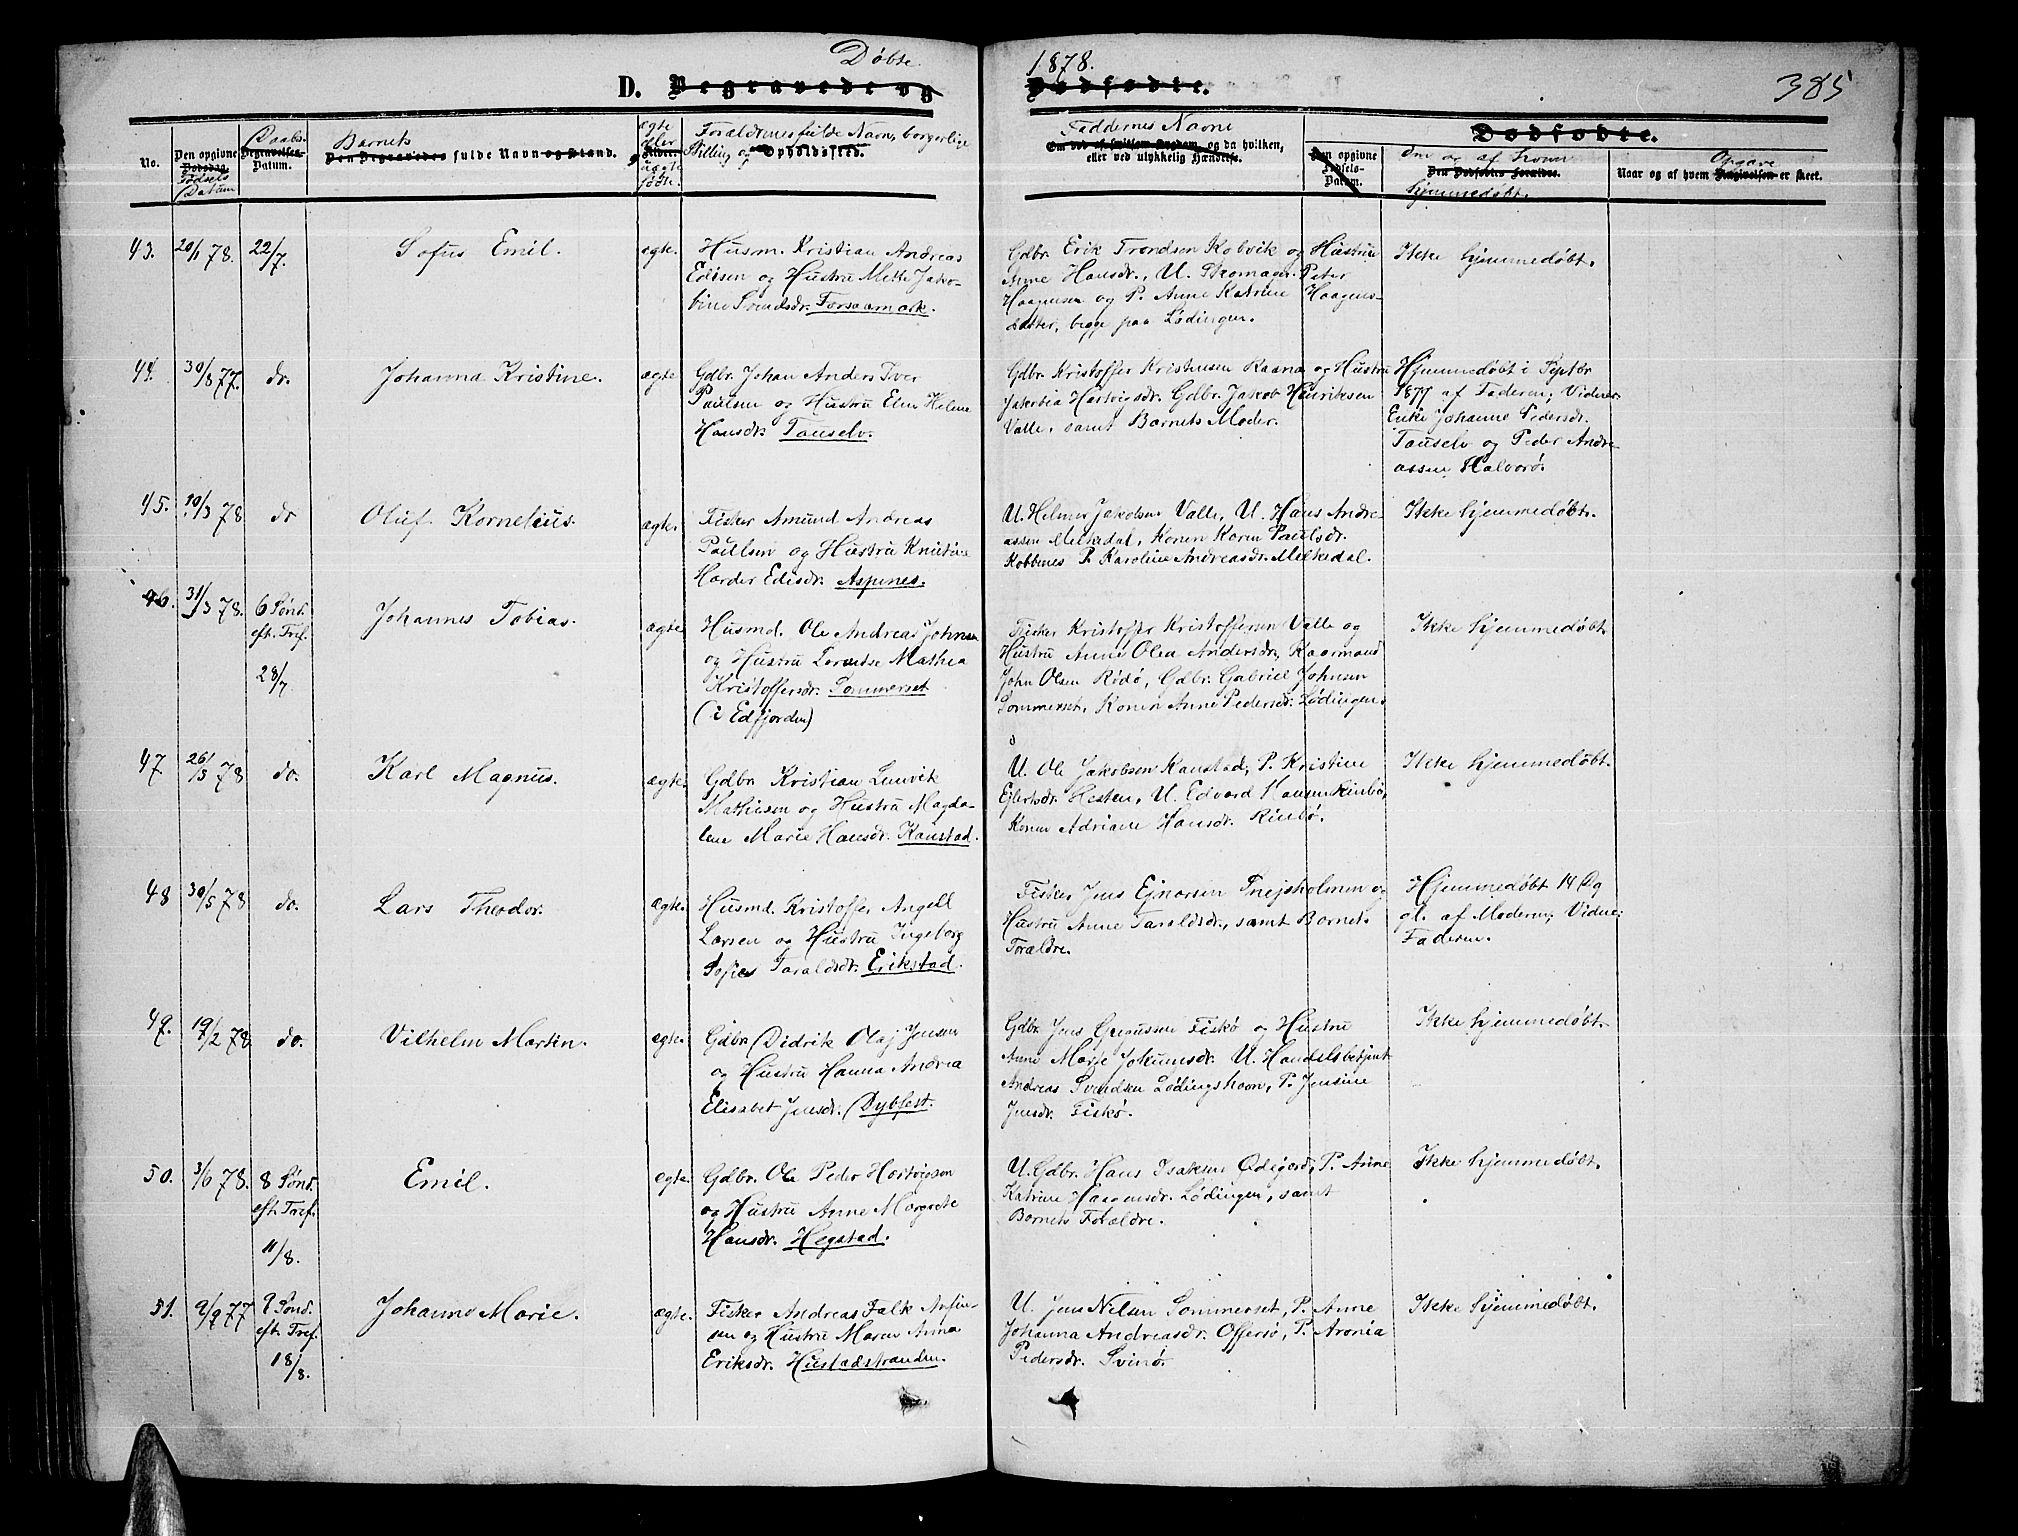 Døbte 1878.
D. Begravede og Dødfødte.
385
No.
Den opgivne Dødsdag Fødsels Datum
Daabs Begravelses Datum.
Barnets
Den Begravedes fulde Navn og Stand.
ægte eller uægte født.
Forældrenes fulde Navn, borgerlige
Stilling og Opholdssted.
Faddernes Navne
Om død af smitsom Sygdom, og da hvilken,
eller ved ulykkelig Hændelse.
Dødfødte.
Den opgivne Fødsels-Datum.
Om og af hvem
Den Dødfødtes Forældre.
hjemmedøbt.
Opgave
Naar og af hvem Angivelsen er skeet.
43. 20/1 78. 22/7. Sofus Emil. ægte.
Husm. Kristian Andreas
Edisen og Hustru Mette Jako-
bine Svendsdr. Forsaamark.
Gdbr. Erik Trondsen Kobvik og Hustru
Anne Hansdr., U. Skomager Peter
Haagensen og P. Anne Katrine Haagens-
datter, begge paa Lødingen.
Ikke hjemmedøbt.
44. 30/8 77. do. Johanna Kristine. ægte
Gdbr. Johan Anders Iver
Paulsen og Hustru Elen Helene
Hansdr. Tauselv.
Gdbr. Kristoffer Kristensen Raana og Hustru
Jakobia Hartvigsdr. Gdbr. Jakob Henriksen
Valle, samt Barnets Moder.
Hjemmedøbt i Septbr
1877 af Faderen; Vidner
Enke Johanne Pedersdr.
Tauselv og Peder Andre-
assen Halvorø.
45. 10/3 78 do Oluf Kornelius. ægte.
Fisker Amund Andreas
Paulsen og Hustru Kristine
Harder Edisdr. Aspenes.
U. Helmer Jakobsen Valle, U. Hans Andre-
assen Melkedal, Konen Karen Paulsdr.
Kobbenes P. Karoline Andreasdr. Melkedal.
Ikke hjemmedøbt.
46. 31/3 78. 6 Sønd.
eft. Tref.
28/7
Johannes Tobias. ægte
Husmd. Ole Andreas Johnsen
og Hustru Mathea
Kristoffersdr. Sommerset
(i Edfjorden)
Fisker Kristoffer Kristoffersen Valle og
Hustru Anne Olea Andersdr, Kaarmand
John Olsen Rødø, Gdbr. Gabriel Johnsen
Sommerset, Konen Anne Pedersdr. Lødingen.
Ikke hjemmedøbt.
47 26/3 78 do. Karl Magnus. ægte.
Gdbr Kristian Lenvik
Mathisen og Hustru Magda-
lene Marie Hansdr. Kanstad.
U. Ole Jakobsen Kanstad, P. Kristine
Ejlertsdr. Hesten, U. Edvard Hansen Rinbø,
Konen Adriane Hansdr. Rinbø.
Ikke hjemmedøbt.
48 30/5 78 do. Lars Theodor. ægte.
Husmd. Kristoffer Angell
Larsen og Hustru Ingeborg
Sofie Taraldsdr. Erikstad.
Fisker Jens Ejnarsen Snejsholmen og
Hustru Anne Taraldsdr., samt Barnets
Forældre.
Hjemmedøbt 14 Dg
gl. af Moderen; Vidne:
Faderen.
49. 19/2 78 do. Vilhelm Martin. ægte.
Gdbr Didrik Olaj Jensen
og Hustru Hanna Andrea
Elisabet Jensdr. Dybfest.
Gdbr. Jens Gregussen Fiskø og Hustru
Anne Marje Jokumsdr. U. Handelsbetjent
Andreas Svendsen Lødingshavn, P. Jensine
Jensdr. Fiskø.
Ikke hjemmedøbt.
50. 3/6 78. 8 Sønd.
eft. Tref.
11/8.
Emil. ægte.
Gdbr. Ole Peder Hartvigsen
og Hustru Anne Margrete
Hansdr. Hegstad.
U. Gdbr. Hans Isaksen Ødegord, P. Anne
Katrine Haagensdr. Lødingen, samt
Barnets Forældre.
Ikke hjemmedøbt.
51. 77 9 Sønd.
eft. Tref.
18/8.
Johanne Marie. ægte.
Fisker Andreas Falk Arfin-
sen og Hustru Maren Anna
Eriksdr. Hustadstranden.
U. Jens Nilsen Sommerset, P. Anne
Johanna Andreasdr. Offersø, P. Aronia
Pedersdr. Svinør.
Ikke hjemmedøbt.